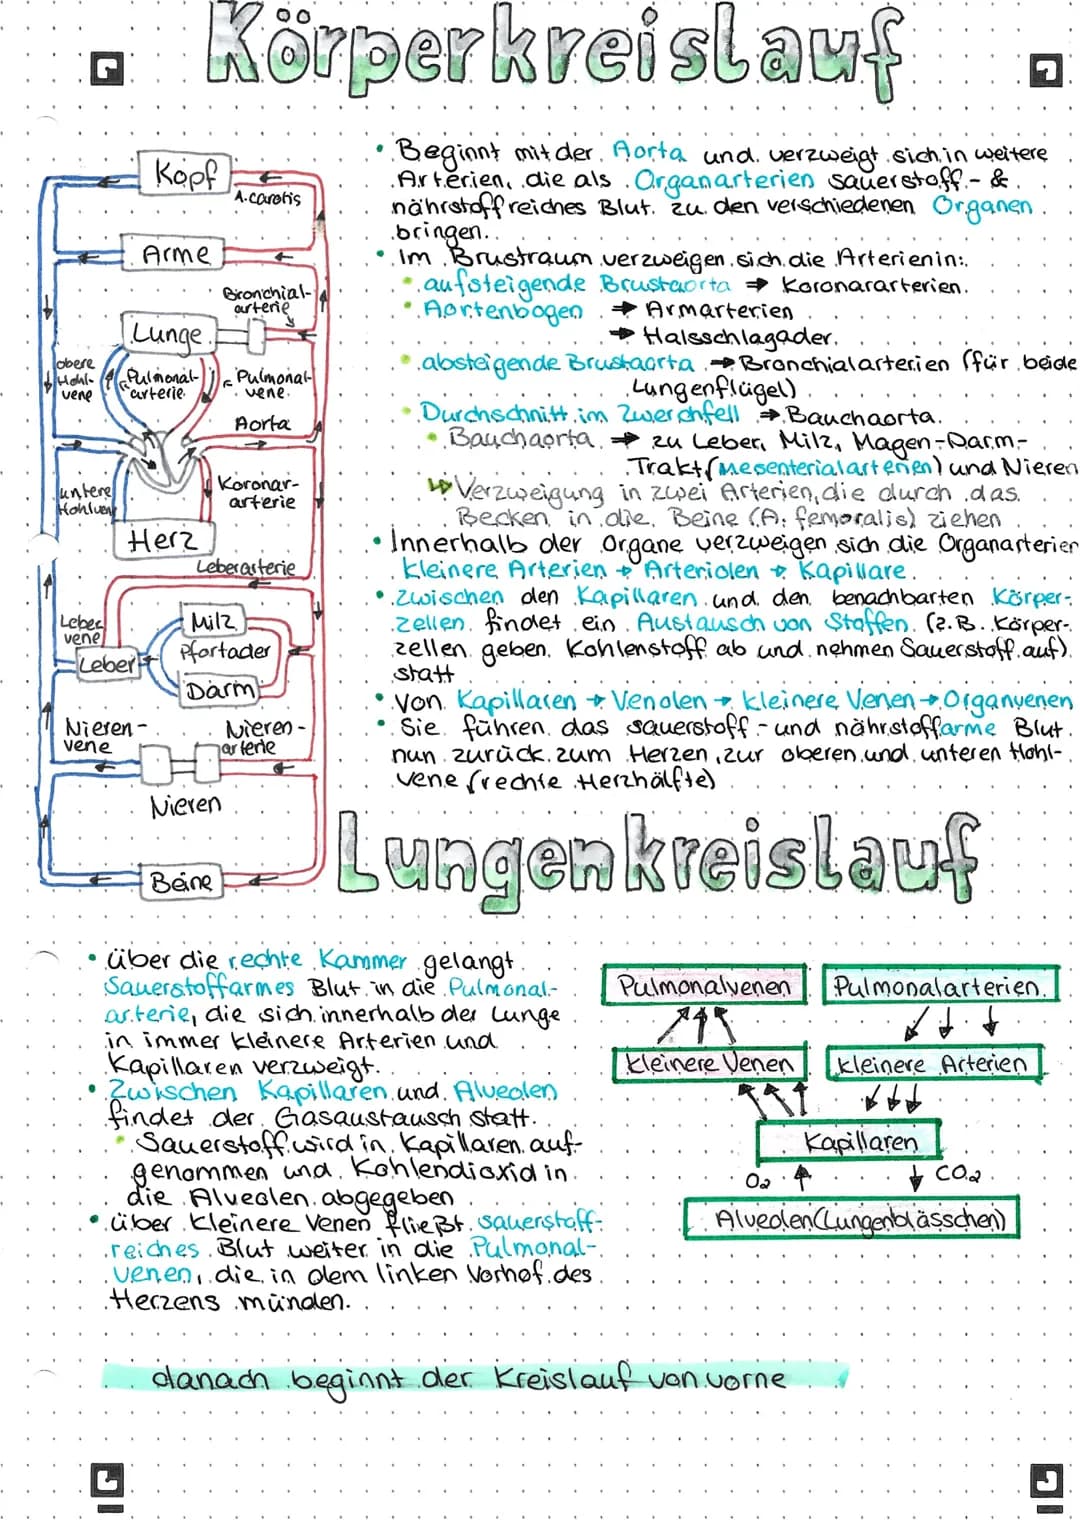 Körperkreislauf
Kopf
A. carotis
Arme
Bronchial-
arterie
Lunge
obere
Hohl-
vene
Pulmonal-
arterie
Pulmonal-
vene
Aorta
untere
Hohlven
Koronar-
arterie
Herz
Leberarterie
Leber
vene
Milz
Pfortader
Leber
Darm
Nieren-
vene
Nieren-
arterie
Nieren
Beine
• Beginnt mit der Aorta und verzweigt sich in weitere
Arterien, die als Organarterien sauerstoff- &
nährstoffreiches Blut zu den verschiedenen Organen
bringen.
• Im Brustraum verzweigen sich die Arterien in:
• aufsteigende Brustaorta → Koronararterien
• Aortenbogen → Armarterien
→ Halsschlagader
• absteigende Brustaorta → Bronchialarterien (für beide
Lungenflügel)
• Durchschnitt im Zwerchfell → Bauchaorta
• Bauchaorta → zu Leber, Milz, Magen-Darm-
Trakt (Mesenterialarterien) und Nieren
↳ Verzweigung in zwei Arterien, die durch das
Becken in die Beine (A. femoralis) ziehen
• Innerhalb der Organe verzweigen sich die Organarterien
kleinere Arterien → Arteriolen → Kapillare
• Zwischen den Kapillaren und den benachbarten Körper-
zellen findet ein Austausch von Stoffen (z.B. Körper-
zellen geben Kohlenstoff ab und nehmen Sauerstoff auf)
statt
• von Kapillaren → Venolen → kleinere Venen → Organvenen
• Sie führen das sauerstoff- und nährstoffarme Blut
nun zurück zum Herzen, zur oberen und unteren Hohl-
vene (rechte Herzhälfte)
Lungenkreislauf
• über die rechte Kammer gelangt
Sauerstoffarmes Blut in die Pulmonal-
arterie, die sich innerhalb der Lunge
in immer kleinere Arterien und
Kapillaren verzweigt.
• Zwischen Kapillaren und Alveolen
findet der Gasaustausch statt.
• Sauerstoff wird in Kapillaren auf-
genommen und Kohlendioxid in
die Alveolen abgegeben
• über kleinere Venen fließt sauerstoff-
reiches Blut weiter in die Pulmonal-
venen, die in dem linken Vorhof des
Herzens münden.
Pulmonalvenen
Pulmonalarterien
kleinere Venen
kleinere Arterien
Kapillaren
O₂
CO₂
Alveolen (Lungenbläschen)
danach beginnt der Kreislauf von vorne